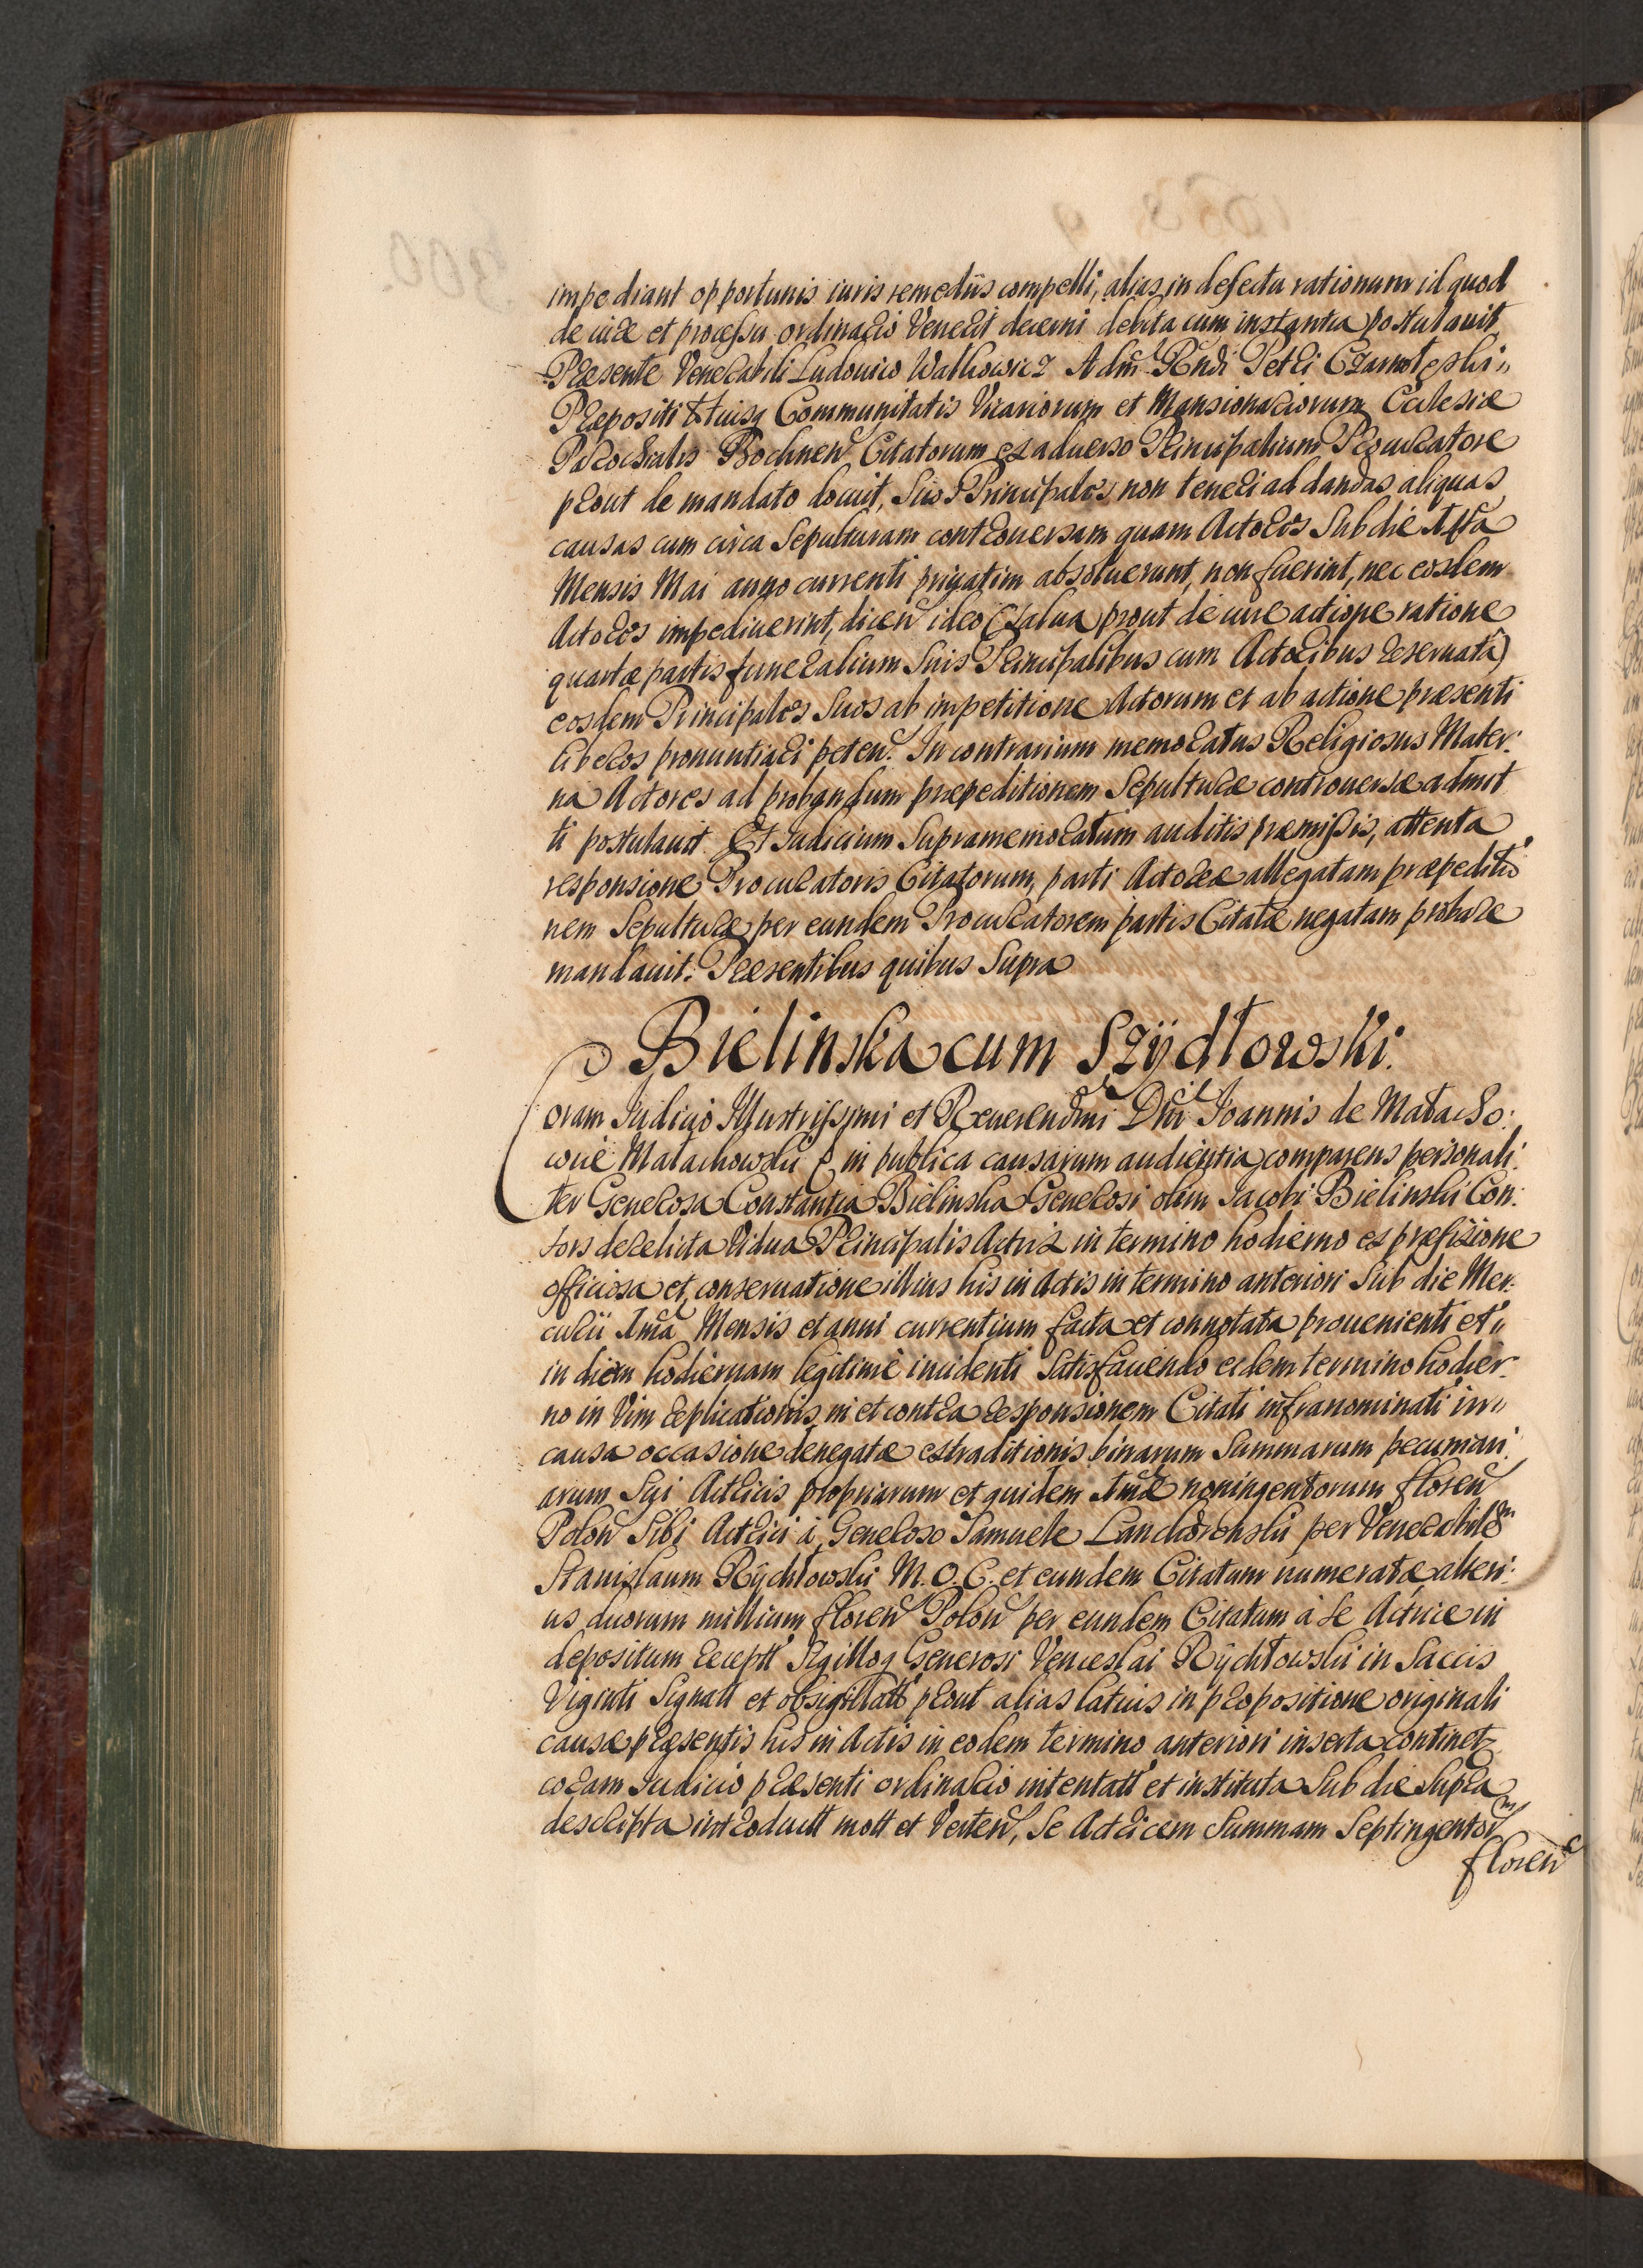 impediant opportunis iuris remediis compelli, alias in defectu rationum id quod
de iure et processu ordinario Venerit decerni debita cum instantia postulauit
Præsente Venerabili Ludouico Walkowicz Adm Rndi Petri
Præpositi totiusq Communitatis Vicariorum et Mansionariorum Ecclesiæ
Parochialis Bochnen Citatorum ex aduerso Principalium Procuratore
prout de mandato docuit, Suos Principales non teneri ad dandas aliquas
causas cum circa Sepulturam controuersam quam Actores Sub die
Mensis Mai anno currenti priuatim absoluerunt, non fuerint, nec eosdem
Actores impediuerint, dicen ideo (Salua prout de iure actione ratione
quartæ partis funeralium Suis Principalibus cum Actoribus reseruata)
eosdem Principales Suos ab impetitione Actorum et ab actione præsenti
liberos pronuntiari peten. In contrarium memoratus Religiosus Mater:
na Actores ad probandum præpeditionem Sepulturæ controuersæ admit
ti postulauit. Et Iudicium Supramemoratum auditis præmissis, attenta
responsione Procuratoris Citatorum, parti Actoreæ allegatam præpeditio
nem Sepulturæ per eundem Procuratorem partis Citatæ negatam probare
mandauit. Præsentibus quibus Supra
Bielinska cum Szÿdłowski.
Coram Iudicio Illustrissimi et Reuerendmi Dni Ioannis de Małacho:
wice Małachowski in publica causarum audientia comparens personali:
ter Generosa Constantia Bielinska Generosi olim Jacobi Bielinski Con:
sors derelicta Vidua Principalis Actrix in termino hodierno ex præfixione
officiosa et conseruatione illius his in Actis in termino anteriori Sub die Mer:
curii Ima Mensis et anni currentium facta et connotata prouenienti et
in diem hodiernam legitime incidenti Satisfaciendo eidem termino hodier:
no in Vim replicationis, in et contra responsionem Citati infranominati in
causa occasione denegatæ extraditionis binarum Summarum pecuniari:
arum Sui Actricis propriarum et quidem Imæ noningentorum floren
Polon Sibi Actrici à Generoso Samuele Lanckoronski per Venerabilem
Stanislaum Rÿchłowski M.O.C. et eundem Citatum numeratæ alteri:
us duorum millium floren Polon per eundem Citatum à Se Actrice in
depositum recept Sigilloq Generosi Venceslai Rÿchłowski in Saccis
Viginti Signatt et obsigillatt prout alias latius in propositione originali
causæ præsentis his in Actis in eodem termino anteriori inserta continetz
coram Iudicio præsenti ordinario intentatt et instituta Sub die Supra
descripta introductt mott et Verten, Se Actricem Summam Septingentor
floren